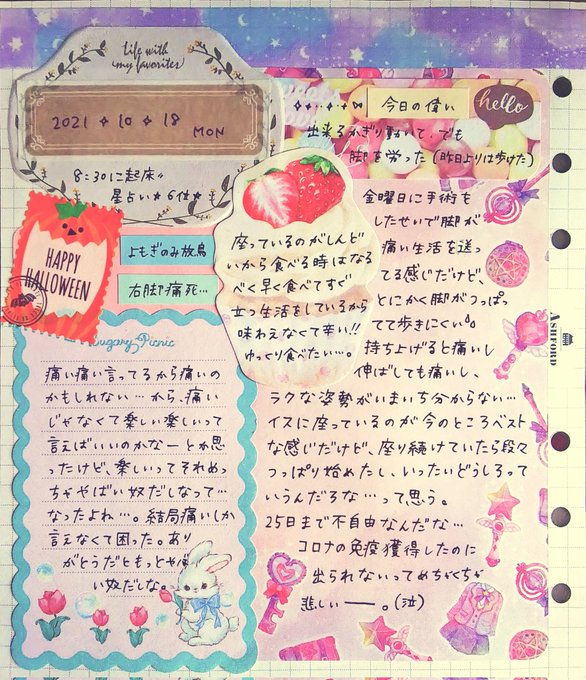 life with
my favorites
2021 ✧ 10 ✧ 18
MON
8:30に起床〃
星占い★6位★も
HAPPY
HALLOWEEN
よもぎのみ放鳥
右脚痛死…
今日の償い
hello
出来るかぎり動いて、でも
脚を労った(昨日よりは歩けた)
座っているのがしんど
いから食べる時はなる
べく早く食べてすぐ
立つ生活をしているから
味わえなくて辛い!!
ゆっくり食べたい…。
金曜日に手術を
したせいで脚が
痛い生活を送っ
てる感じだけど、
とにかく脚がつっぱっ
てて歩きにくい
持ち上げると痛いし
伸ばしても痛いし、
ラクな姿勢がいまいち分からない…
イスに座っているのが今のところベスト
な感じだけど、座り続けていたら段々
つっぱり始めたし、いったいどうしろって
いうんだろな…って思う。
25日まで不自由なんだな…
コロナの免疫獲得したのに
出られないってめちゃくちゃ
悲しい──。(泣)
Sugary Picnic
痛い痛い言ってるから痛いの
かもしれない…から、痛い
じゃなくて楽しい楽しいって
言えばいいのかなーとか思
ったけど、楽しいってそれめっ
ちゃやばい奴だしなって…
なったよね…。結局痛いしか
言えなくて困った。あり
がとうだともっとやば
い奴だしな。
ASHFORD